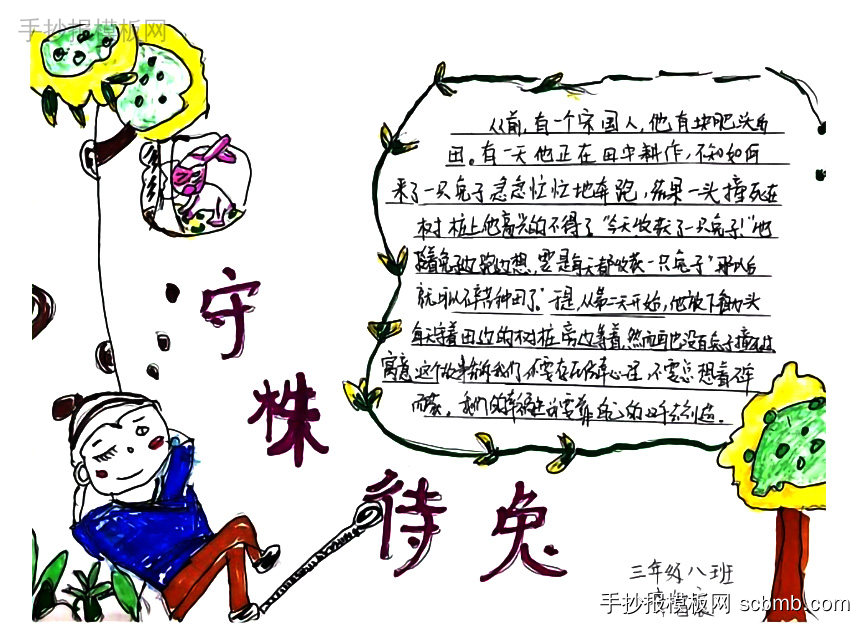 手抄报模板网
守株待兔
从前,有一个宋国人,他有块肥沃的
田。有一天他正在田中耕作,不知如何
来了一只兔子急急忙忙地奔跑,结果一头撞死在
树桩上他高兴的不得了"今天收获了一只兔子!"他
边想,要是每天都收获一只兔子"那以后
就可以不种田了。"于是,从第二天开始,他放下锄头
每天守着田边的树桩旁边等着,然而再也没有兔子撞死过
寓意这个故事告诉我们,不要存在侥幸心理,不要总想着不
而获。我们的幸福生活要靠自己的双手去创造。
三年级八班
手抄报模板网 scbmb.com